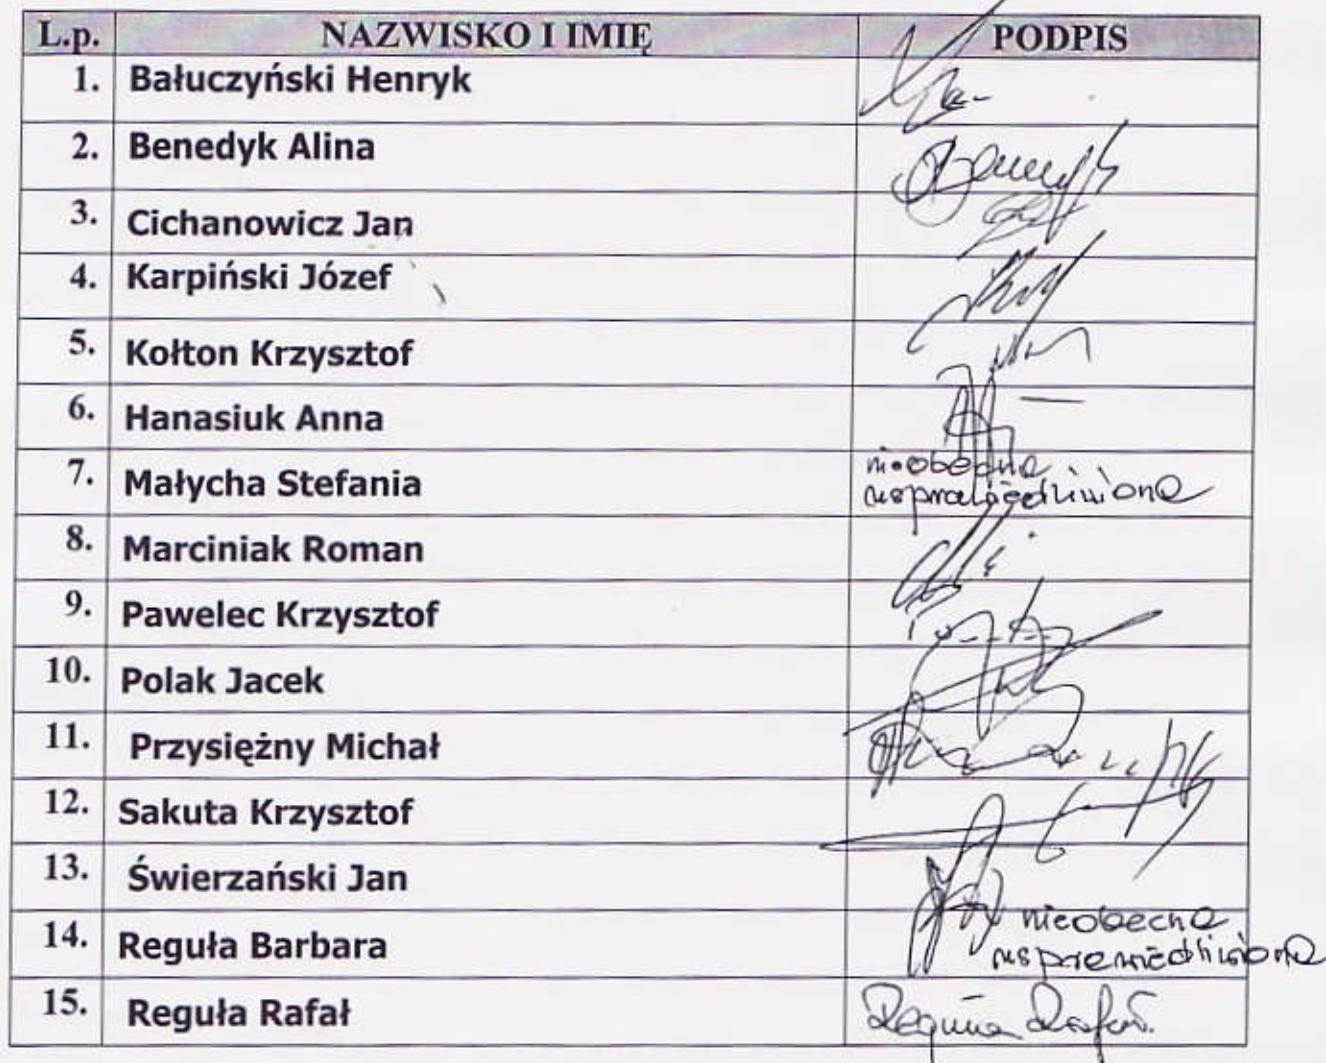 L.p. NAZWISKO I IMIĘ PODPIS
1. Bałuczyński Henryk
2. Benedyk Alina
3. Cichanowicz Jan
4. Karpiński Józef
5. Kołton Krzysztof
6. Hanasiuk Anna
7. Małycha Stefania nieobecna
usprawiedliwiona
8. Marciniak Roman
9. Pawelec Krzysztof
10. Polak Jacek
11. Przysiężny Michał
12. Sakuta Krzysztof
13. Świerzański Jan
14. Reguła Barbara nieobecna
usprawiedliwiona
15. Reguła Rafał Reguła Rafał